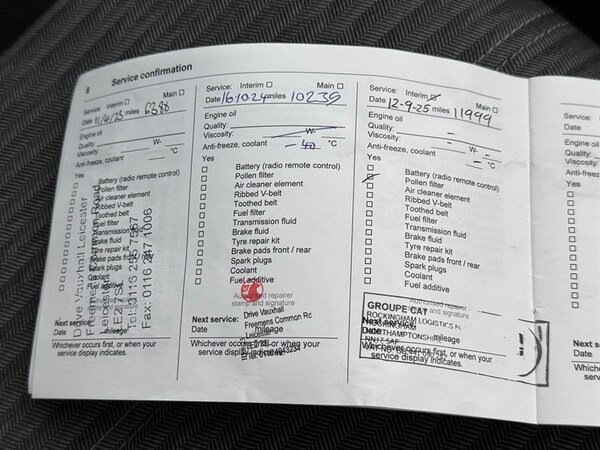 8
Service confirmation
Service: Interim ☐ Main ☐
Date 11/4/23 miles 6388
Engine oil
Quality:
Viscosity: W-
Anti-freeze, coolant °C
Yes
☐ Battery (radio remote control)
☐ Pollen filter
☐ Air cleaner element
☐ Ribbed V-belt
☐ Toothed belt
☐ Fuel filter
☐ Transmission fluid
☐ Brake fluid
☐ Tyre repair kit
☐ Brake pads front / rear
☐ Spark plugs
☐ Coolant
☐ Fuel additive
Drive Vauxhall Leicester
Freemens Common Road
Leicester
LE2 7SL
Fax: 0116 247 1006
Next service:
Date mileage
Whichever occurs first, or when your
service display indicates.
Service: Interim ☐ Main ☐
Date 16/10/24 miles 10235
Engine oil
Quality:
Viscosity: W-
Anti-freeze, coolant - 40 °C
Yes
☐ Battery (radio remote control)
☐ Pollen filter
☐ Air cleaner element
☐ Ribbed V-belt
☐ Toothed belt
☐ Fuel filter
☐ Transmission fluid
☐ Brake fluid
☐ Tyre repair kit
☐ Brake pads front / rear
☐ Spark plugs
☐ Coolant
☐ Fuel additive
Authorised repairer
stamp and signature
Drive Vauxhall
Freemens Common Rd
Leicester
Next service:
Date mileage
Whichever occurs first, or when your
service display indicates.
Service: Interim ☑ Main ☐
Date 12-9-25 miles 11999
Engine oil
Quality: -
Viscosity: - W- -
Anti-freeze, coolant - °C
Yes
☐ Battery (radio remote control)
☑ Pollen filter
☐ Air cleaner element
☐ Ribbed V-belt
☐ Toothed belt
☐ Fuel filter
☐ Transmission fluid
☐ Brake fluid
☐ Tyre repair kit
☐ Brake pads front / rear
☐ Spark plugs
☐ Coolant
☐ Fuel additive
Authorised repairer
stamp and signature
GROUPE CAT
ROCKINGHAM LOGISTICS
ROCKINGHAM
NORTHAMPTONSHIRE
NN17 5AF
Next service:
Date mileage
Whichever occurs first, or when your
service display indicates.
Service:
Date
Engine oil
Quality:
Viscosity:
Anti-freeze
Yes
Next s
Date
Which
servic